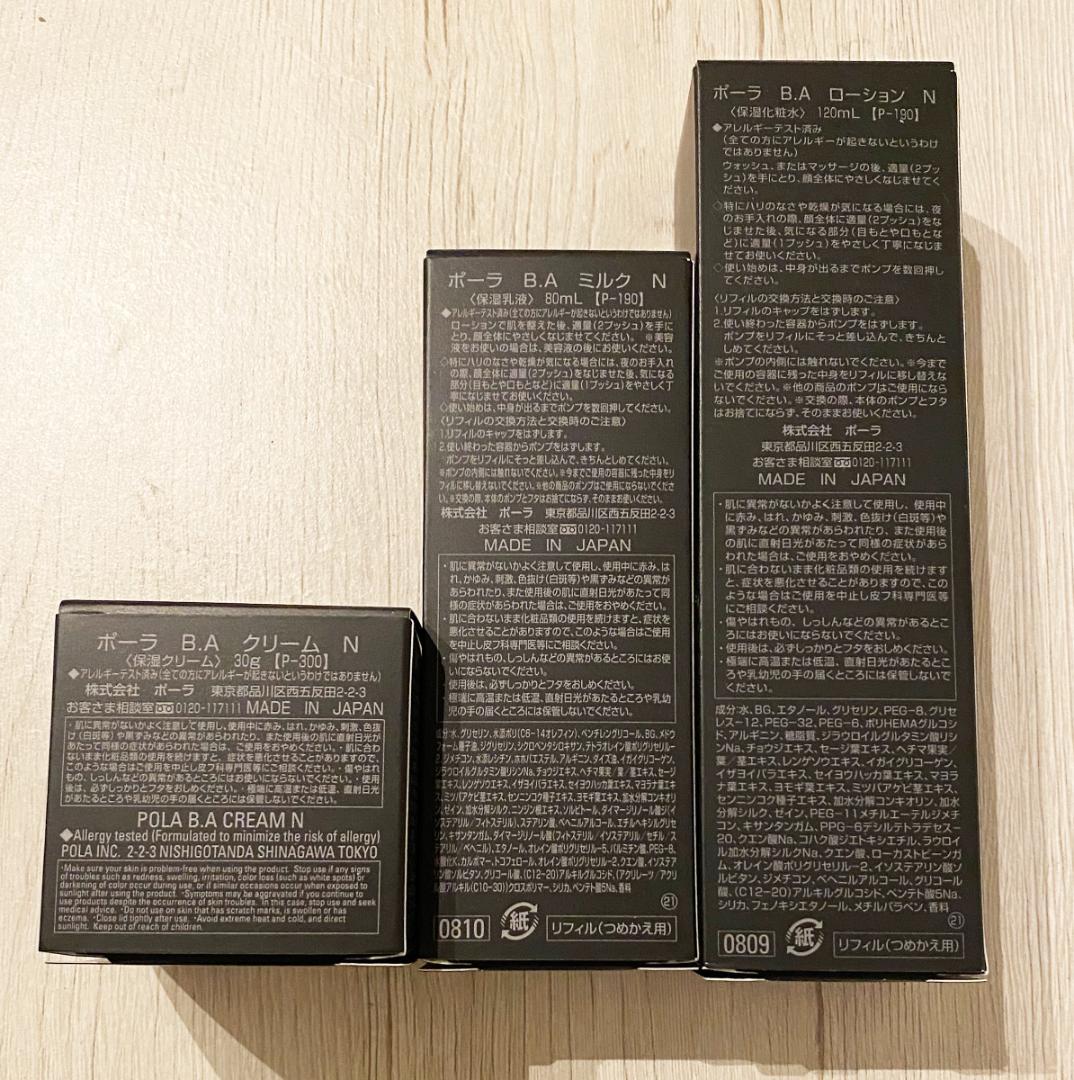 ポーラ B.A クリーム N
〈保湿クリーム〉 30g 【P-300】
◆アレルギーテスト済み(全ての方にアレルギーが起きないというわけではありません)
株式会社 ポーラ 東京都品川区西五反田2-2-3
お客さま相談室 0120-117111 MADE IN JAPAN
・肌に異常がないかよく注意して使用し、使用中に赤み、はれ、かゆみ、刺激、色抜
け(白斑等)や黒ずみなどの異常があらわれたり、また使用後の肌に直射日光が
あたって同様の症状があらわれた場合は、ご使用をおやめください。・肌に合わ
ないまま化粧品類の使用を続けますと、症状を悪化させることがありますので、
このような場合はご使用を中止し皮フ科専門医等にご相談ください。・傷やはれ
もの、しっしんなどの異常があるところにはお使いにならないでください。・使用
後は、必ずしっかりとフタをおしめください。・極端に高温または低温、直射日光
があたるところや乳幼児の手の届くところには保管しないでください。
POLA B.A CREAM N
◆Allergy tested (Formulated to minimize the risk of allergy)
POLA INC. 2-2-3 NISHIGOTANDA SHINAGAWA TOKYO
・Make sure your skin is problem-free when using the product. Stop use if any signs
of troubles such as redness, swelling, irritation, color loss (such as white spots) or
darkening of color occur during use, or if similar occasions occur when exposed to
sunlight after using the product. ・Symptoms may be aggravated if you continue to
use products despite the occurrence of skin troubles. In this case, stop use and seek
medical advice. ・Do not use on skin that has scratch marks, is swollen or has
eczema. ・Close lid tightly after use. ・Avoid extreme heat and cold, and direct
sunlight. Keep out of reach of children.
ポーラ B.A ミルク N
〈保湿乳液〉 80mL 【P-190】
◆アレルギーテスト済み(全ての方にアレルギーが起きないというわけではありません)
ローションで肌を整えた後、適量(2プッシュ)を手に
とり、顔全体にやさしくなじませてください。 ※美容
液をお使いの場合は、美容液の後にお使いください。
◇特にハリのなさや乾燥が気になる場合には、夜のお手入れ
の際、顔全体に適量(2プッシュ)をなじませた後、気になる
部分(目もとや口もとなど)に適量(1プッシュ)をやさしく丁
寧になじませてお使いください。
◇使い始めは、中身が出るまでポンプを数回押してください。
〈リフィルの交換方法と交換時のご注意〉
1.リフィルのキャップをはずします。
2.使い終わった容器からポンプをはずします。
ポンプをリフィルにそっと差し込んで、きちんとしめてください。
※ポンプの内側には触れないでください。※今までご使用の容器に残った中身をリ
フィルに移し替えないでください。※他の商品のポンプはご使用にならないでくださ
い。※交換の際、本体のポンプとフタはお捨てにならず、そのままお使いください。
株式会社 ポーラ 東京都品川区西五反田2-2-3
お客さま相談室 0120-117111
MADE IN JAPAN
・肌に異常がないかよく注意して使用し、使用中に赤み、は
れ、かゆみ、刺激、色抜け(白斑等)や黒ずみなどの異常が
あらわれたり、また使用後の肌に直射日光があたって同
様の症状があらわれた場合は、ご使用をおやめください。
・肌に合わないまま化粧品類の使用を続けますと、症状を
悪化させることがありますので、このような場合はご使用
を中止し皮フ科専門医等にご相談ください。
・傷やはれもの、しっしんなどの異常があるところにはお使
いにならないでください。
・使用後は、必ずしっかりとフタをおしめください。
・極端に高温または低温、直射日光があたるところや乳幼
児の手の届くところには保管しないでください。
成分:水、グリセリン、水添ポリ(C6-14オレフィン)、ペンチレングリコール、BG、メドウ
フォーム種子油、ジグリセリン、シクロペンタシロキサン、テトラオレイン酸ポリグリセリル-
2、ジメチコン、水添レシチン、ホホバエステル、アルギニン、ダイズ油、イガイグリコーゲン、
ジラウロイルグルタミン酸リシンNa、チョウジエキス、ヘチマ果実/葉/茎エキス、セージ
葉エキス、レンゲソウエキス、イザヨイバラエキス、セイヨウハッカ葉エキス、マヨラナ葉エキ
ス、ミツバアケビ茎エキス、センニンコク種子エキス、ヨモギ葉エキス、加水分解コンキオリ
ン、ゼイン、加水分解シルク、ニンジン根エキス、ソルビトール、ダイマージリノール酸ジ(イ
ソステアリル/フィトステリル)、ステアリン酸、ベヘニルアルコール、エチルヘキシルグリセ
リン、キサンタンガム、ダイマージリノール酸(フィトステリル/イソステアリル/セチル/ス
テアリル/ベヘニル)、エタノール、オレイン酸ポリグリセリル-5、パルミチン酸、PEG-8、
水酸化K、カルボマー、トコフェロール、オレイン酸ポリグリセリル-2、クエン酸、イソステア
リン酸ソルビタン、グリコール酸、(C12-20)アルキルグルコシド、(アクリレーツ/アクリ
ル酸アルキル(C10-30))クロスポリマー、シリカ、ペンテト酸5Na、香料
21
0810
紙
リフィル(つめかえ用)
ポーラ B.A ローション N
〈保湿化粧水〉 120mL 【P-190】
◆アレルギーテスト済み
(全ての方にアレルギーが起きないというわけ
ではありません)
ウォッシュ、またはマッサージの後、適量(2プッ
シュ)を手にとり、顔全体にやさしくなじませてく
ださい。
◇特にハリのなさや乾燥が気になる場合には、夜
のお手入れの際、顔全体に適量(2プッシュ)をな
じませた後、気になる部分(目もとや口もとな
ど)に適量(1プッシュ)をやさしく丁寧になじま
せてお使いください。
◇使い始めは、中身が出るまでポンプを数回押し
てください。
〈リフィルの交換方法と交換時のご注意〉
1.リフィルのキャップをはずします。
2.使い終わった容器からポンプをはずします。
ポンプをリフィルにそっと差し込んで、きちんと
しめてください。
※ポンプの内側には触れないでください。※今まで
ご使用の容器に残った中身をリフィルに移し替えな
いでください。※他の商品のポンプはご使用になら
ないでください。※交換の際、本体のポンプとフタ
はお捨てにならず、そのままお使いください。
株式会社 ポーラ
東京都品川区西五反田2-2-3
お客さま相談室 0120-117111
MADE IN JAPAN
・肌に異常がないかよく注意して使用し、使用中
に赤み、はれ、かゆみ、刺激、色抜け(白斑等)や
黒ずみなどの異常があらわれたり、また使用後
の肌に直射日光があたって同様の症状があら
われた場合は、ご使用をおやめください。
・肌に合わないまま化粧品類の使用を続けます
と、症状を悪化させることがありますので、この
ような場合はご使用を中止し皮フ科専門医等
にご相談ください。
・傷やはれもの、しっしんなどの異常があるとこ
ろにはお使いにならないでください。
・使用後は、必ずしっかりとフタをおしめください。
・極端に高温または低温、直射日光があたるとこ
ろや乳幼児の手の届くところには保管しないで
ください。
成分:水、BG、エタノール、グリセリン、PEG-8、グリセ
レス-12、PEG-32、PEG-6、ポリHEMAグルコシ
ド、アルギニン、糖脂質、ジラウロイルグルタミン酸リシ
ンNa、チョウジエキス、セージ葉エキス、ヘチマ果実/
葉/茎エキス、レンゲソウエキス、イガイグリコーゲン、
イザヨイバラエキス、セイヨウハッカ葉エキス、マヨラ
ナ葉エキス、ヨモギ葉エキス、ミツバアケビ茎エキス、
センニンコク種子エキス、加水分解コンキオリン、加水
分解シルク、ゼイン、PEG-11メチルエーテルジメチ
コン、キサンタンガム、PPG-6デシルテトラデセス-
20、クエン酸Na、コハク酸ジエトキシエチル、ラウロイ
ル加水分解シルクNa、クエン酸、ローカストビーンガ
ム、オレイン酸ポリグリセリル-2、イソステアリン酸ソ
ルビタン、ジメチコン、ベヘニルアルコール、グリコール
酸、(C12-20)アルキルグルコシド、ペンテト酸5Na、
シリカ、フェノキシエタノール、メチルパラベン、香料
21
0809
紙
リフィル(つめかえ用)